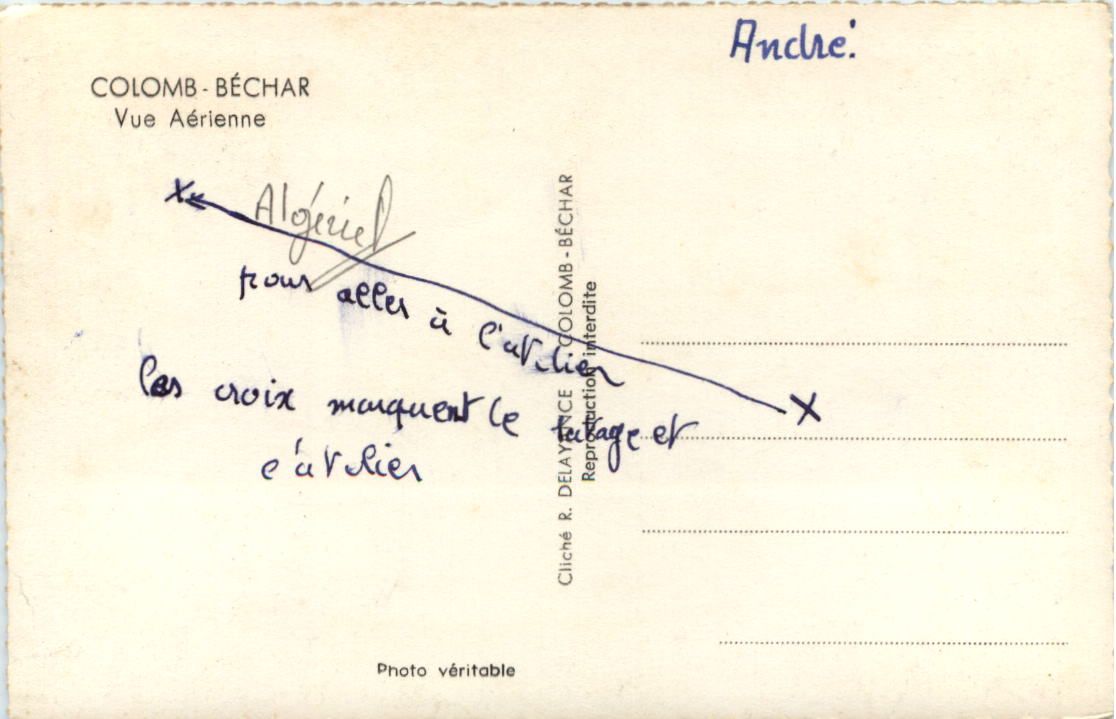 André.
COLOMB - BÉCHAR
Vue Aérienne
X
Algérie
pour aller à l'atelier
X
les croix marquent le et
l'atelier
Cliché R. DELAYANCE COLOMB - BÉCHAR
Reproduction interdite
Photo véritable